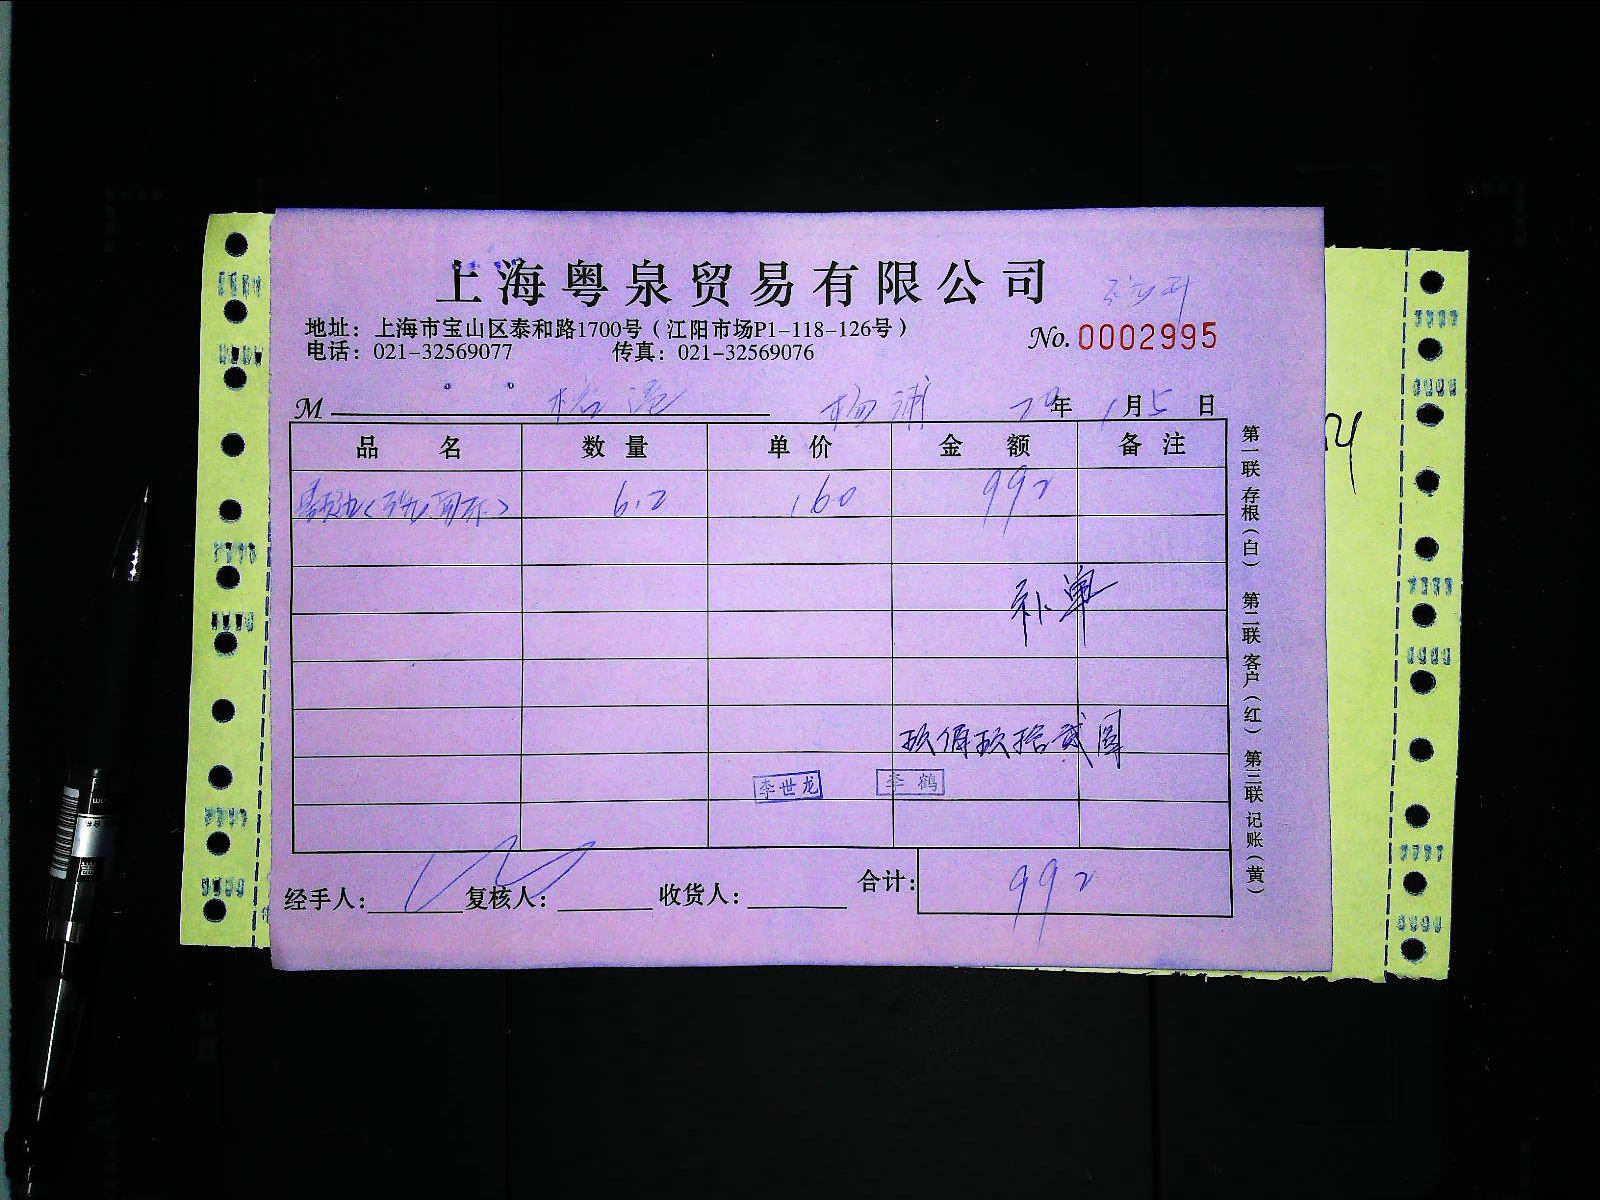 上海粤泉贸易有限公司
地址：上海市宝山区泰和路1700号（江阳市场P1-118-126号）
No. 0002995
电话：021-32569077 传真：021-32569076
M 杨浦 年 1月5日
品名 数量 单价 金额 备注
6.2 160 992
补单
玖佰玖拾贰圆
李世龙 李鹤
经手人： 复核人： 收货人： 合计： 992
第一联 存根（白） 第二联 客户（红） 第三联 记账（黄）